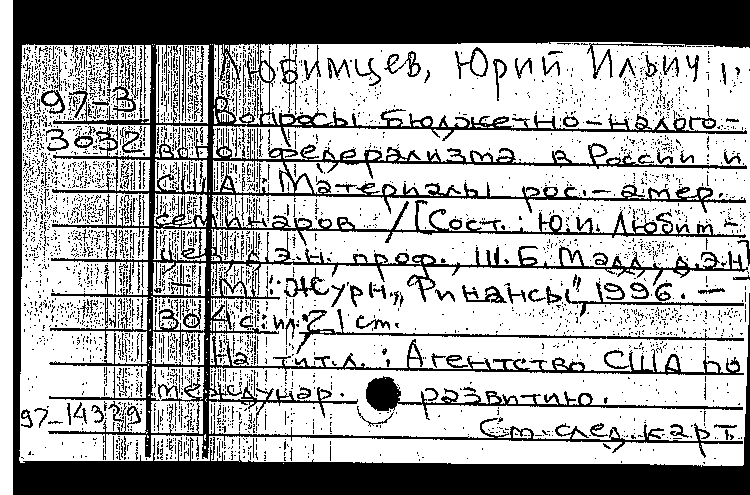 Любимцев, Юрий Ильич,.
97-3 Вопросы бюджетно-налого-
3032 вого федерализма в России и
США : Материалы рос.-амер.
семинаров / [Сост.: Ю.И. Любим-
цев, д.э.н., проф., Ш.Б. Малл, д.э.н]
. - М. : Журн. „Финансы", 1996. -
304 с : ил ; 21 см.
На тит.л. : Агентство США по
междунар. развитию.
97-14329
См. след. карт